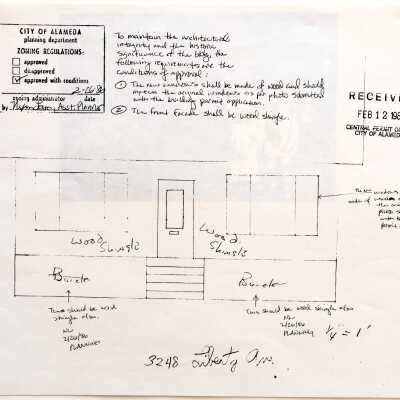 CITY OF ALAMEDA
planning department
ZONING REGULATIONS:
approved
disapproved
approved with conditions
2-26-86
zoning administrator date
by Asst. Planner
To maintain the architectural
integrity and the historic
significance of the bldg, the
following requirements are the
conditions of approval:
① The new windows shall be made of wood and shall
match the original windows as per photo submitted
with the building permit application.
② The front facade shall be wood shingle.
RECEIVE
FEB 12 198
CENTRAL PERMIT O
CITY OF ALAMED
wood
Shingle
Wood
Shingle
Brick
Brick
This should be wood
shingle also.
2/26/86
PLANNING
This should be wood shingle also.
2/26/86
PLANNING
1/4" = 1'
3248 Liberty Ave.